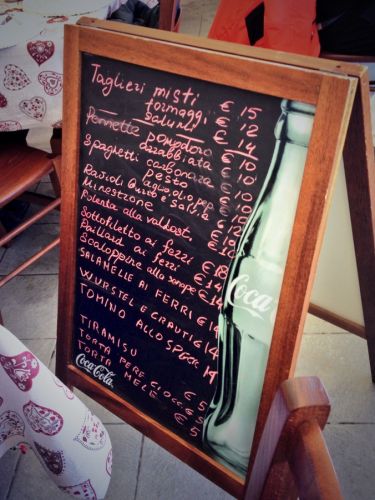 Taglieri misti € 15
formaggi € 12
salumi € 14
Pennette pomodoro € 10
arrabbiata € 10
Spaghetti carbonara € 10
pesto € 10
aglio, olio, pep. € 10
Ravioli Burro e salvia €
Minestrone €
Polenta alla valdost. € 12
Sottofiletto ai ferri € 18
Paillard ai ferri € 14
Scaloppine alla € 14
SALAMELLE AI FERRI € 14
WURSTEL E CRAUTI € 14
TOMINO ALLO SPECK 14
TIRAMISU € 5
TORTA PERE CIOCC € 5
TORTA MELE € 5
Coca-Cola
Coca